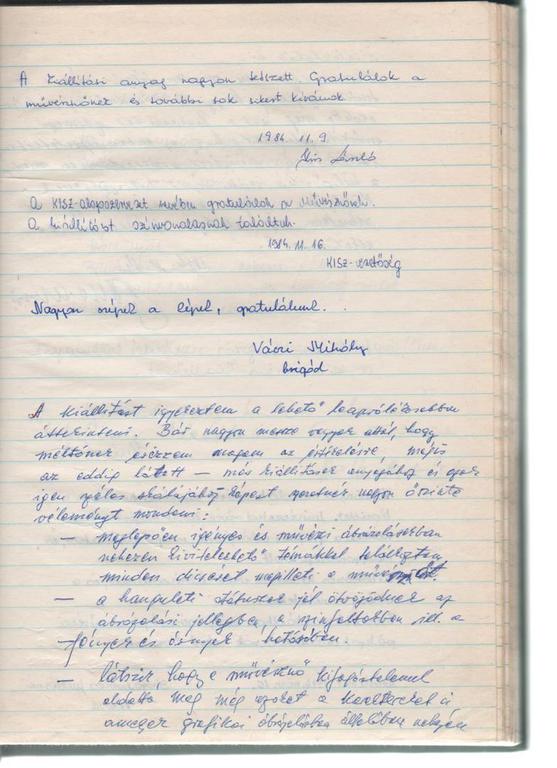 A kiállítási anyag nagyon tetszett. Gratulálok a
művésznőnek és további sok sikert kívánok
1984. 11. 9.
László
A KISZ-alapszervezet nevében gratulálok a művésznőnek.
A kiállítást színvonalasnak találtuk.
1984. 11. 16.
KISZ-vezetőség
Nagyon szépek a képek, gratulálunk.
Váczi Mihály
brigád
A kiállítást igyekeztem a lehető legaprólékosabban
áttekinteni. Bár nagyon messze vagyok attól, hogy
méltónak érezzem magam az értékelésre, mégis
az eddig látott – más kiállítások anyagához és azok
igen széles skálájához képest szeretnék nagyon őszinte
véleményt mondani:
– meglepően igényes és művészi ábrázolásokban
nehezen kivitelezhető témákkal találkoztam
minden dicséret megilleti a művésznőt.
– a hangulati státuszok jól tükröződnek az
ábrázolási jellegben, a színfoltokban ill. a
fények és árnyak hatásában.
– látszik, hogy a művésznő kifogástalanul
oldotta meg még azokat a kereteket is
amelyek grafikai ábrázolásban általában nehezen